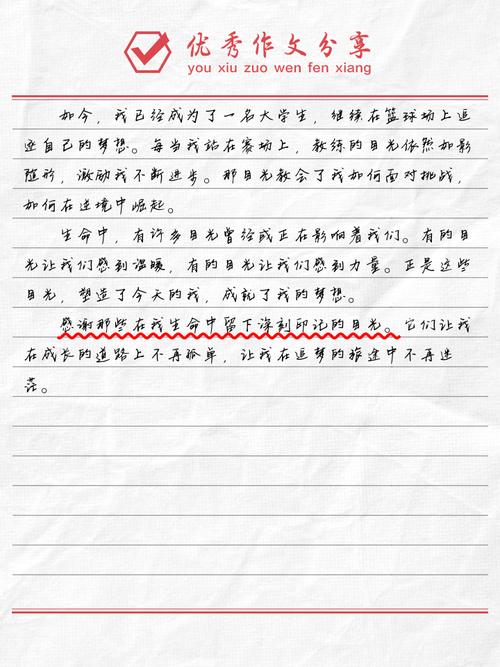 优秀作文分享
you xiu zuo wen fen xiang
如今，我已经成为了一名大学生，继续在篮球场上追
逐自己的梦想。每当我站在赛场上，教练的目光依然如影
随形，激励我不断进步。那目光教会了我如何面对挑战，
如何在逆境中崛起。
生命中，有许多目光曾经或正在影响着我们。有的目
光让我们感到温暖，有的目光让我们感到力量。正是这些
目光，塑造了今天的我，成就了我的梦想。
感谢那些在我生命中留下深刻印记的目光。它们让我
在成长的道路上不再孤单，让我在追梦的旅途中不再迷
茫。